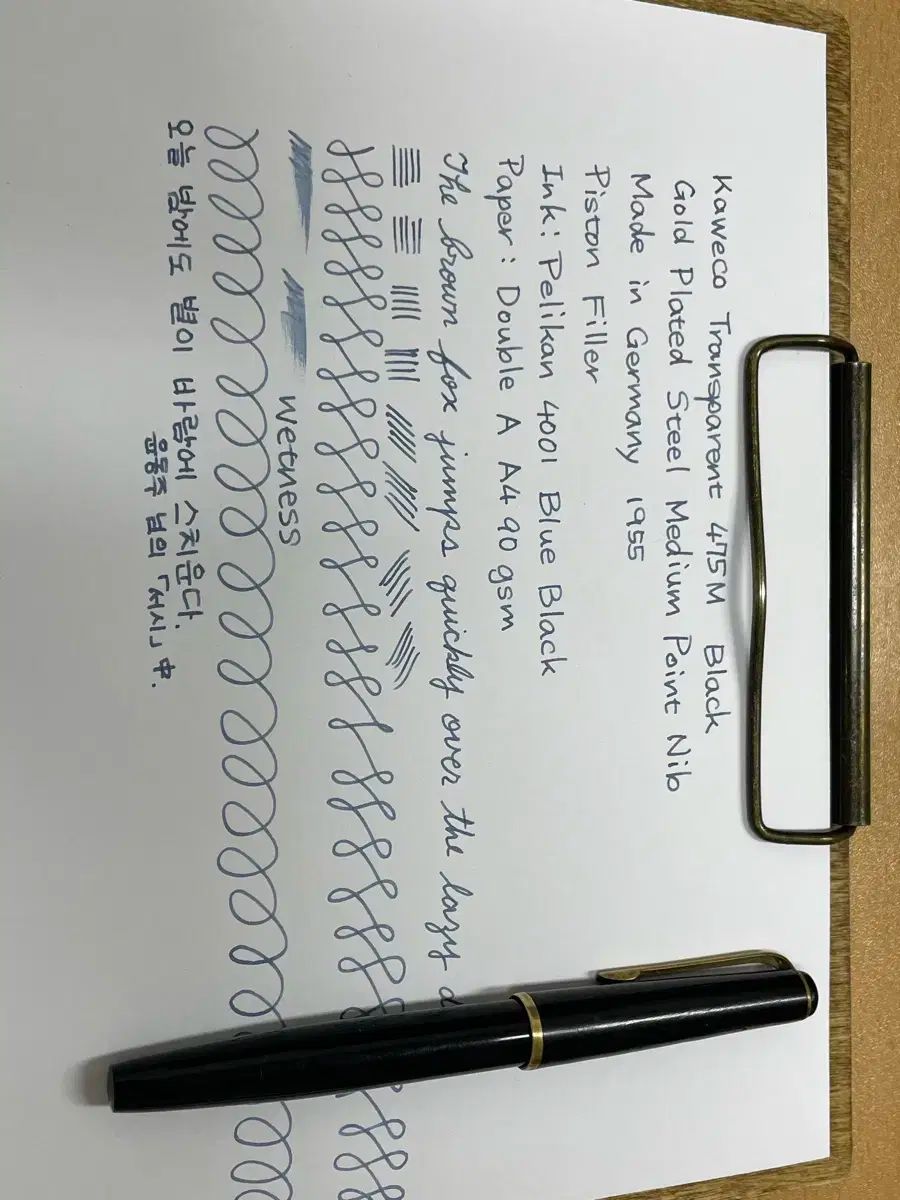 Kaweco Transparent 475M Black
Gold Plated Steel Medium Point Nib
Made in Germany 1955
Piston Filler
Ink: Pelikan 4001 Blue Black
Paper: Double A A4 90gsm
The brown fox jumps quickly over the lazy
Wetness
오늘 밤에도 별이 바람에 스치운다.
윤동주 님의 「서시」 中.